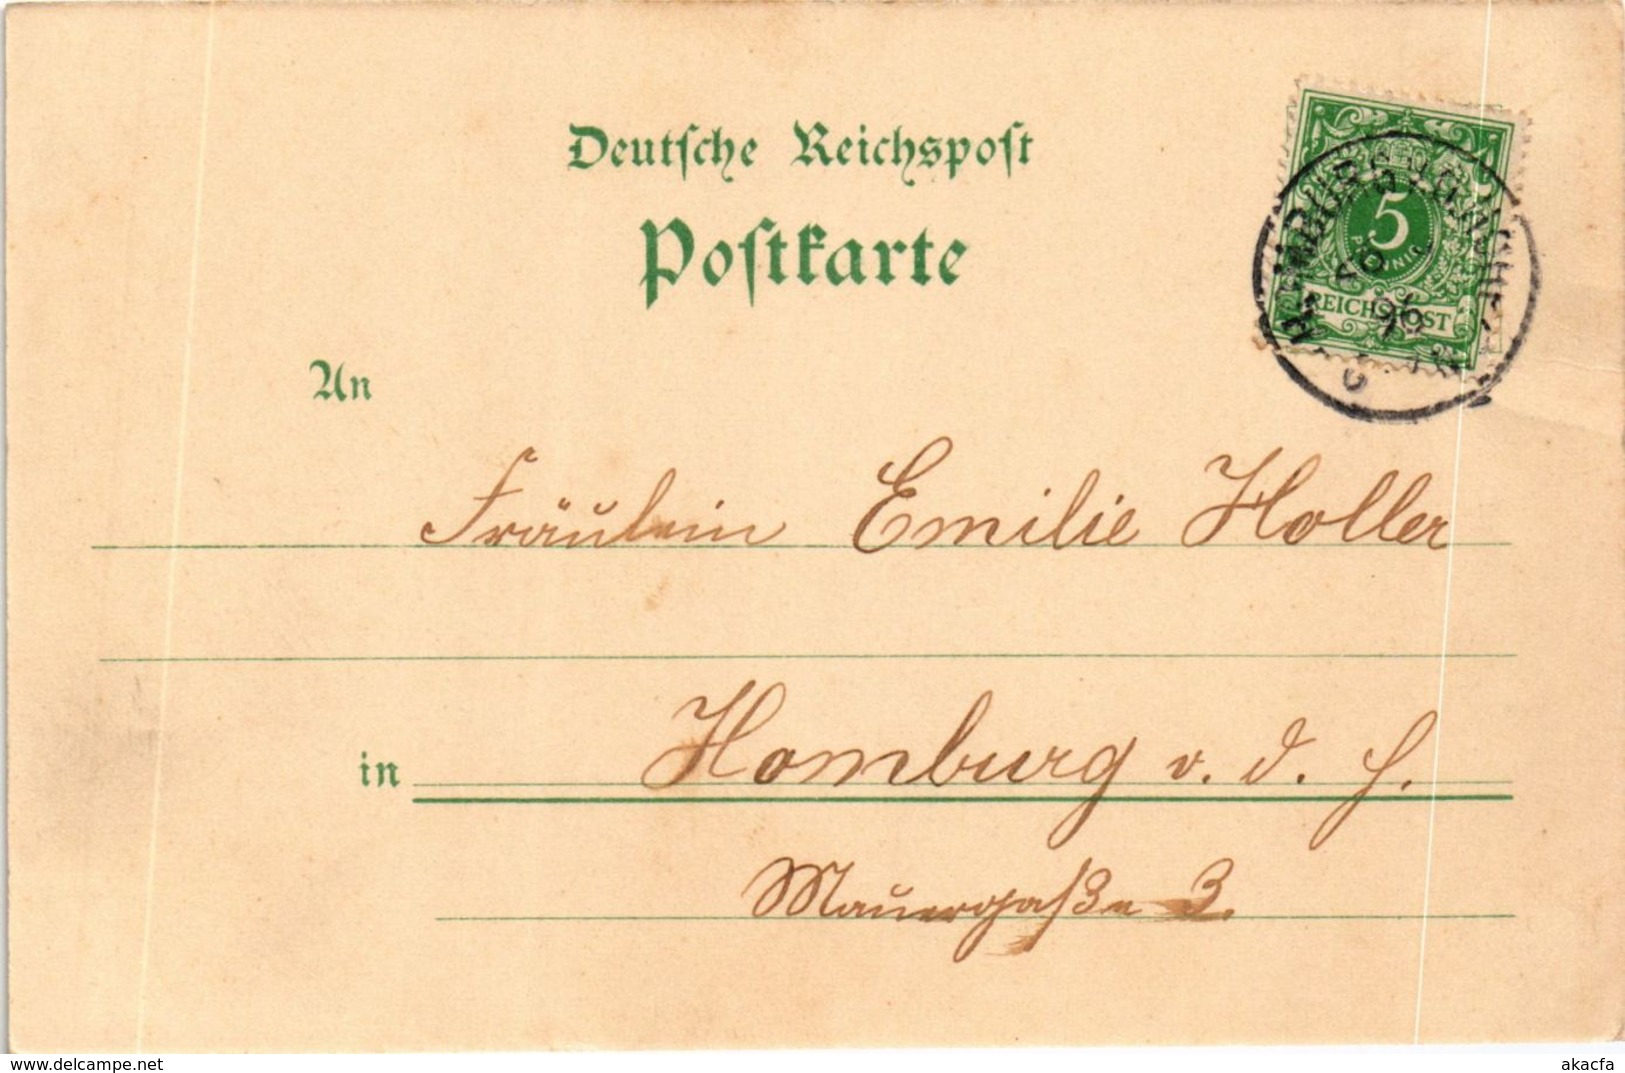 Deutsche Reichspost
Postkarte
5
PFENNIG
REICHSPOST
96
An
Fräulein Emilie Holler
in Homburg v. d. H.
Mauergaße 3.
delcampe.net
akacfa